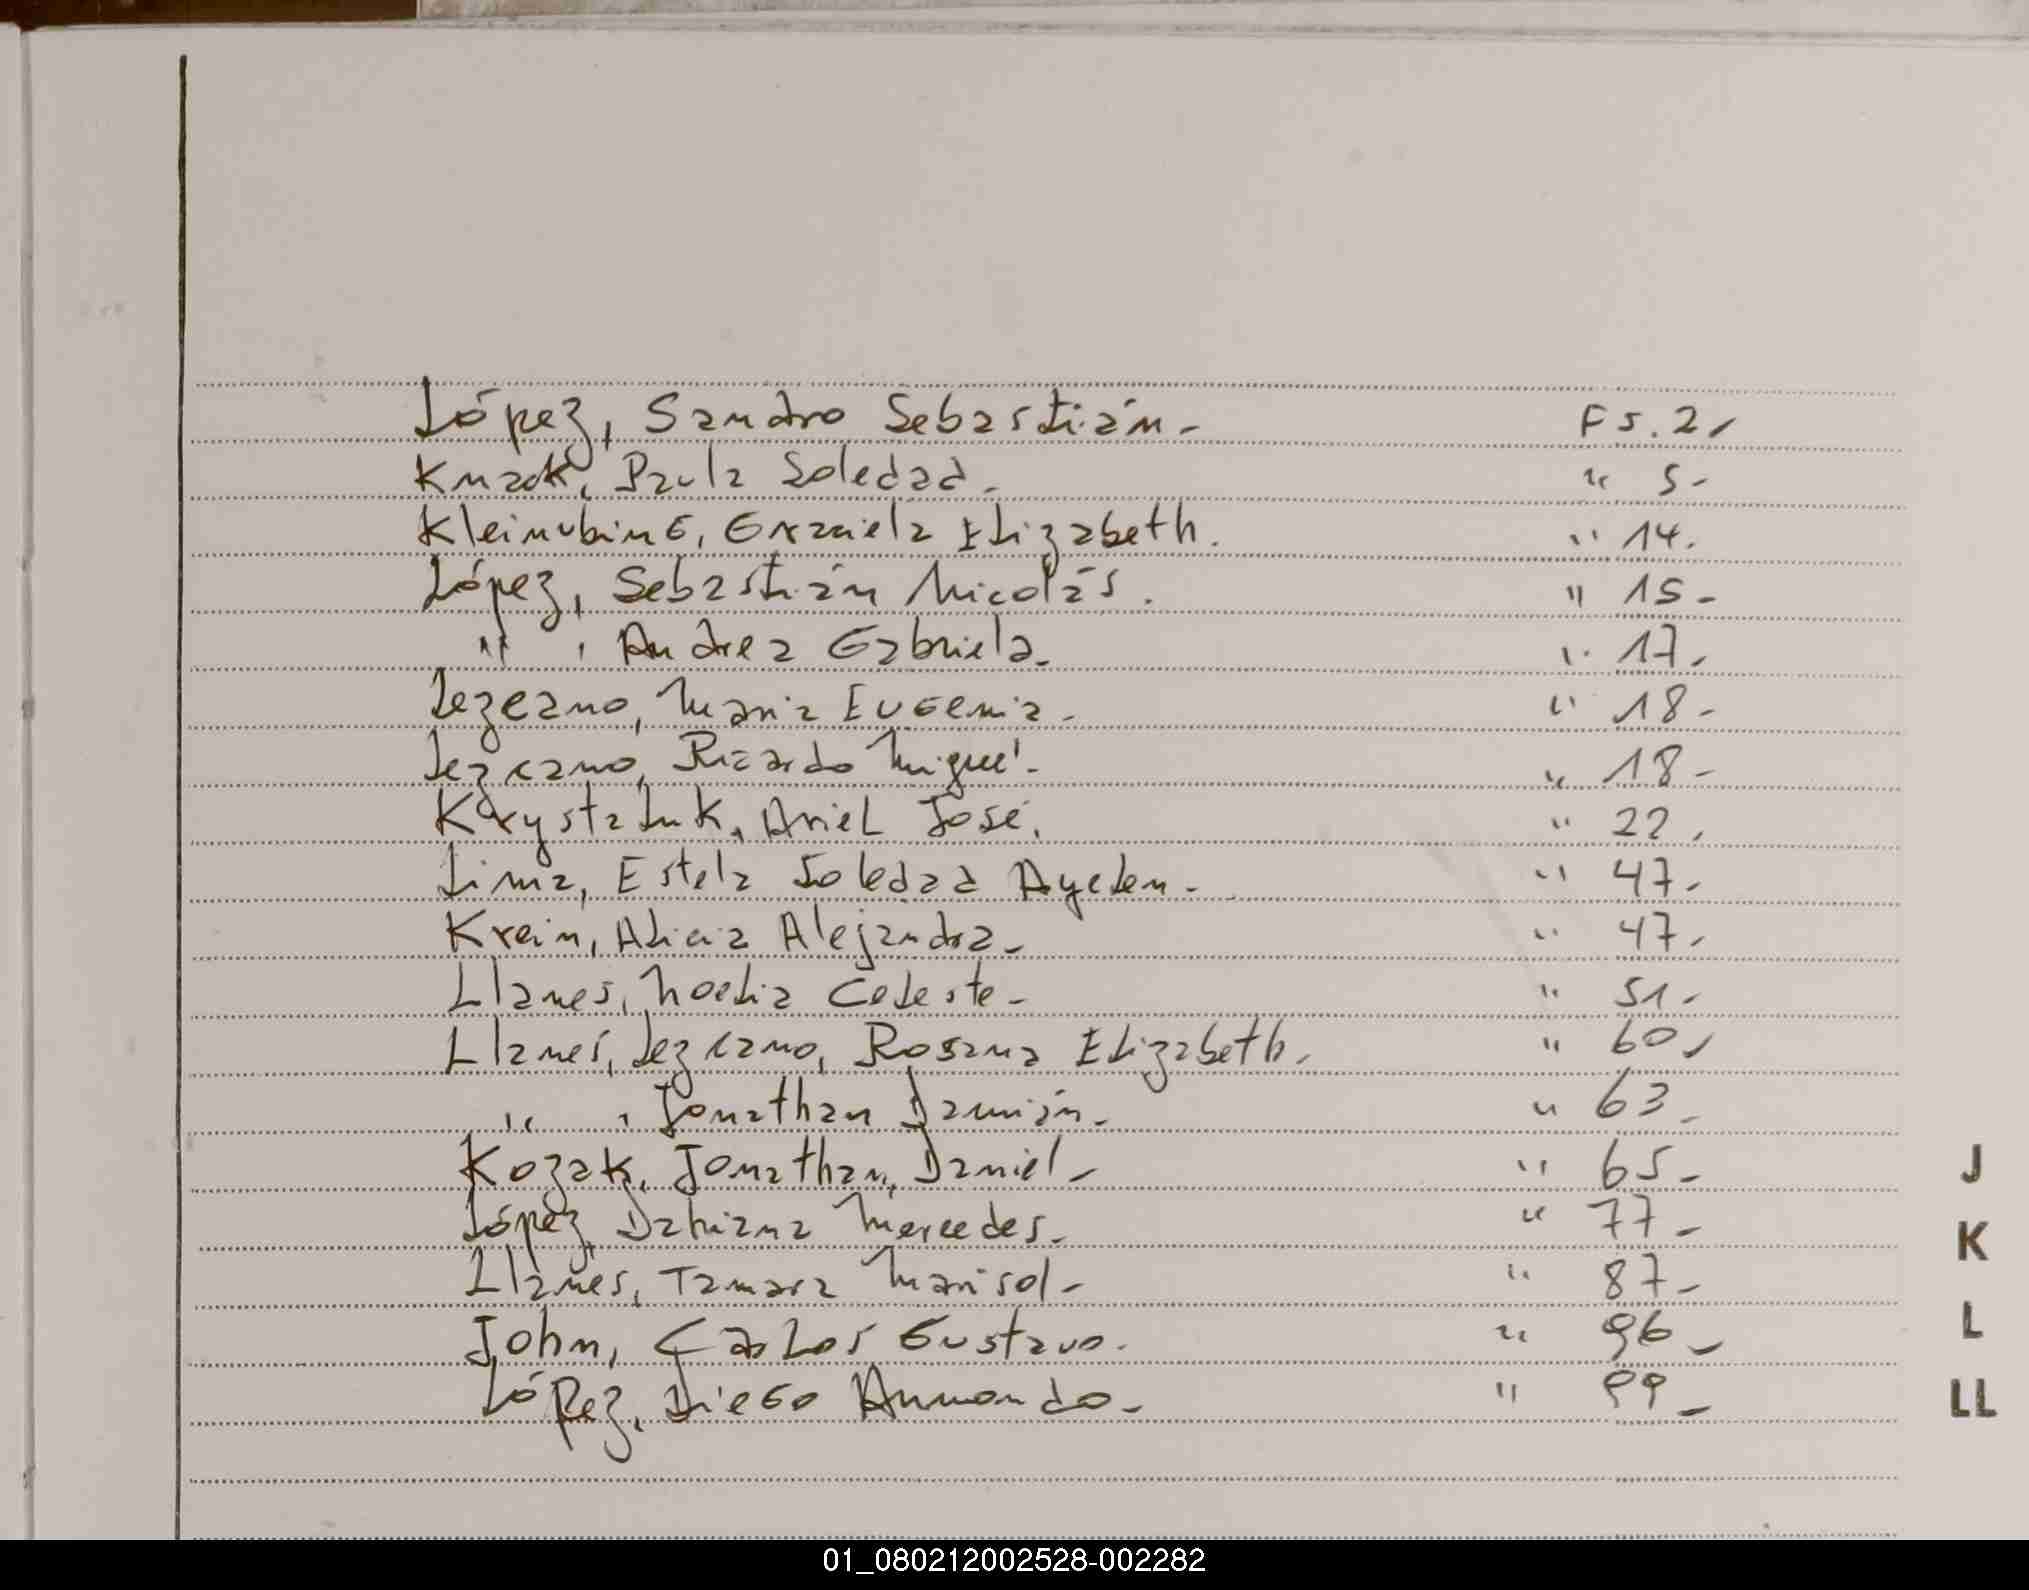 López, Sandro Sebastián- Fs. 2,
Knack, Paula Soledad. " 5-
Kleinubing, Graciela Elizabeth. " 14.
López, Sebastián Nicolás. " 15-
" , Andrea Gabriela. " 17,
Lezcano, Maria Eugenia- " 18-
Lezcano, Ricardo Miguel- " 18-
Ariel José. " 22,
Lima, Estela Soledad Ayelen- " 47-
Krein, Alicia Alejandra- " 47,
Llanes, Noelia Celeste- " 51,
Llanes, Lezcano, Rosana Elizabeth, " 60,
" , Jonathan Damián- " 63-
Kozak, Jonathan, Daniel- " 65-
J
López, Dahiana Mercedes. " 77-
K
Llanes, Tamara Marisol- " 87-
John, Carlos Gustavo. " 96-
L
López, Diego Armando- " 99-
LL
01_080212002528-002282